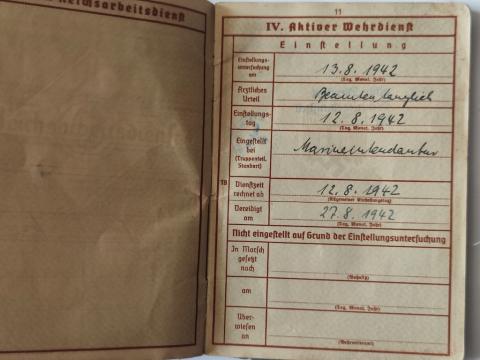 Reichsarbeitsdienst
11
IV. Aktiver Wehrdienst
Einstellung
Einstellungs-
untersuchung
am
13.8.1942
(Tag, Monat, Jahr)
Ärztliches
Urteil
Beamtentauglich
Einstellungs-
tag
12.8.1942
(Tag, Monat, Jahr)
Eingestellt
bei
(Truppenteil,
Standort)
Marineintendantur
18
Dienstzeit
rechnet ab
12.8.1942
Vereidigt
am
27.8.1942
(Tag, Monat, Jahr)
Nicht eingestellt auf Grund der Einstellungsuntersuchung
In Marsch
gesetzt
nach
am
(Tag, Monat, Jahr)
Über-
wiesen
an